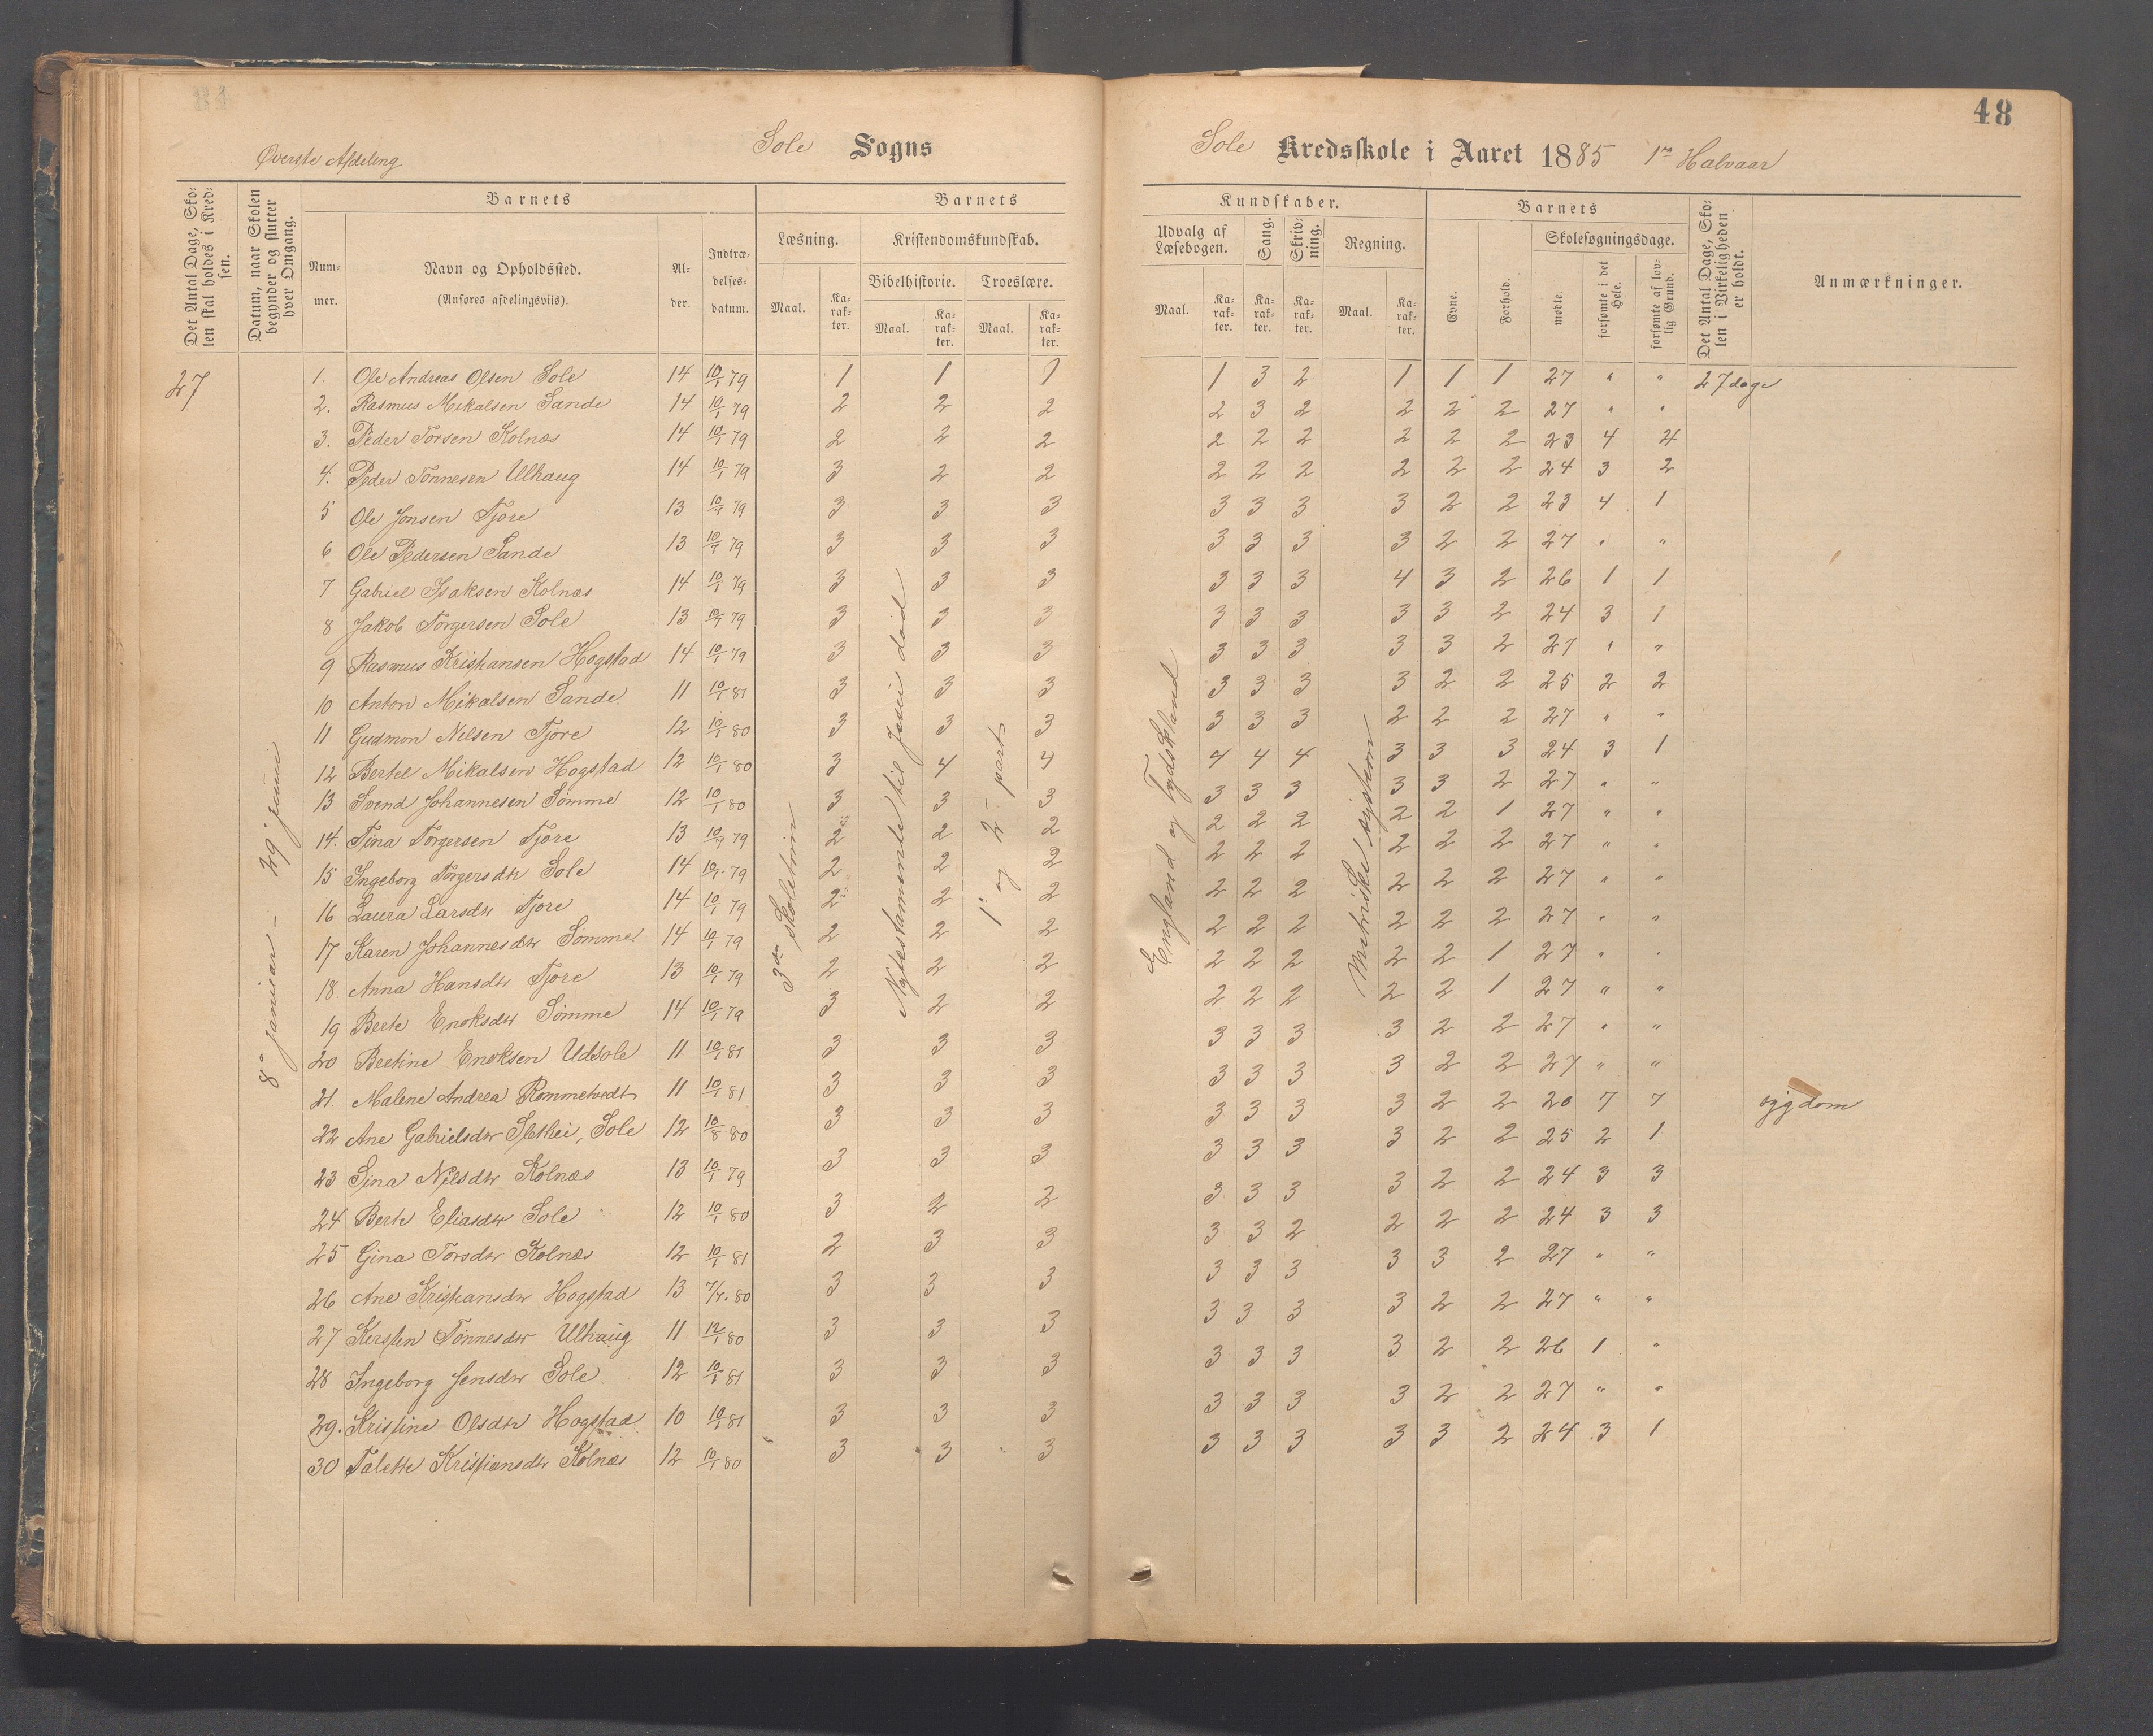 48
Øverste Afdeling
Sole Sogns
Sole Kredsskole i Aaret 1885 1ste Halvaar
Det Antal Dage, Skolen skal holdes i Kredsen.
Datum, naar Skolen begynder og slutter hver Omgang.
Barnets
Nummer.
Navn og Opholdssted.
(Anføres afdelingsviis).
Alder.
Indtrædelsesdatum.
Barnets
Læsning.
Maal.
Karakter.
Kristendomskundskab.
Bibelhistorie.
Maal.
Karakter.
Troeslære.
Maal.
Karakter.
Kundskaber.
Udvalg af Læsebogen.
Maal.
Karakter.
Sang.
Karakter.
Skrivning.
Karakter.
Regning.
Maal.
Karakter.
Barnets
Evne.
Forhold.
Skolesøgningsdage.
mødte.
forsømte i det Hele.
forsømte af lovlig Grund.
Det Antal Dage, Skolen i Virkeligheden er holdt.
Anmærkninger.
27
8de januar - 29 juni
3die skoletrin
Nytestamente til Jesu død
1 og 2 part
England og Tydskland
Metriske system
1. Ole Andreas Olsen Sole 14 10/1 79 1 1 1 1 3 2 1 1 1 27 " " 27 dage
2. Rasmus Mikalsen Sande 14 10/1 79 2 2 2 2 3 2 2 2 2 27 " "
3. Peder Torsen Kolnæs 14 10/1 79 2 2 2 2 2 2 2 2 2 23 4 4
4. Peder Tønnesen Ulhaug 14 10/1 79 3 2 2 2 2 2 2 2 2 24 3 2
5 Ole Jonsen Tjore 13 10/9 79 3 3 3 3 3 3 3 2 2 23 4 1
6 Ole Pedersen Sande 13 10/9 79 3 3 3 3 3 3 3 2 2 27 " "
7 Gabriel Isaksen Kolnæs 14 10/1 79 3 3 3 3 3 3 4 3 2 26 1 1
8 Jakob Torgersen Sole 13 10/9 79 3 3 3 3 3 3 3 3 2 24 3 1
9 Rasmus Kristiansen Hogstad 14 10/1 79 3 3 3 3 3 3 3 3 2 27 " "
10 Anton Mikalsen Sande 11 10/1 81 3 3 3 3 3 3 3 2 2 25 2 2
11 Gudmon Nilsen Tjore 12 10/1 80 3 3 3 3 3 3 2 2 2 27 " "
12 Bertel Mikalsen Hogstad 12 10/1 80 3 4 4 4 4 4 3 3 3 24 3 1
13 Svend Johannesen Sømme 12 10/1 80 3 3 3 3 3 3 3 3 2 27 " "
14. Tina Torgersen Tjore 13 10/9 79 2 2 2 2 2 2 2 2 1 27 " "
15 Ingeborg Torgersdtr Sole 14 10/1 79 2 2 2 2 2 2 2 2 2 27 " "
16 Laura Larsdtr Tjore 14 10/1 79 2 2 2 2 2 2 2 2 2 27 " "
17 Karen Johannesdtr Sømme 14 10/1 79 2 2 2 2 2 2 2 2 2 27 " "
18. Anna Hansdtr Tjore 13 10/1 79 2 2 2 2 2 2 2 2 1 27 " "
19 Berte Enoksdtr Sømme 14 10/1 79 3 2 2 2 2 2 2 2 1 27 " "
20 Bertine Enoksen Udsole 11 10/1 81 3 3 3 3 3 3 3 2 2 27 " "
21. Malene Andrea Rommetvedt 11 10/1 81 3 3 3 3 3 3 3 2 2 27 " "
22 Ane Gabrielsdtr Slethei, Sole 12 10/8 80 3 3 3 3 3 3 3 2 2 20 7 7 sygdom
23 Sina Nilsdtr Kolnæs 13 10/1 79 3 3 3 3 3 3 3 2 2 25 2 1
24 Berte Eliasdtr Sole 12 10/1 80 3 2 2 3 3 3 3 2 2 24 3 3
25 Gina Torsdtr Kolnæs 12 10/1 81 2 3 3 3 3 2 2 2 2 24 3 3
26 Ane Kristiansdtr Hogstad 13 7/7 80 3 3 3 3 3 3 3 3 2 27 " "
27 Kersten Tønnesdtr Ulhaug 11 12/1 80 3 3 3 3 3 3 3 2 2 27 " "
28 Ingeborg Jensdtr Sole 12 10/1 81 3 3 3 3 3 3 3 2 2 26 1 "
29. Kristine Olsdtr Hogstad 10 10/1 81 3 3 3 3 3 3 3 2 2 27 " "
30 Talette Kristiansdtr Kolnæs 12 10/1 80 3 3 3 3 3 3 3 3 2 24 3 1